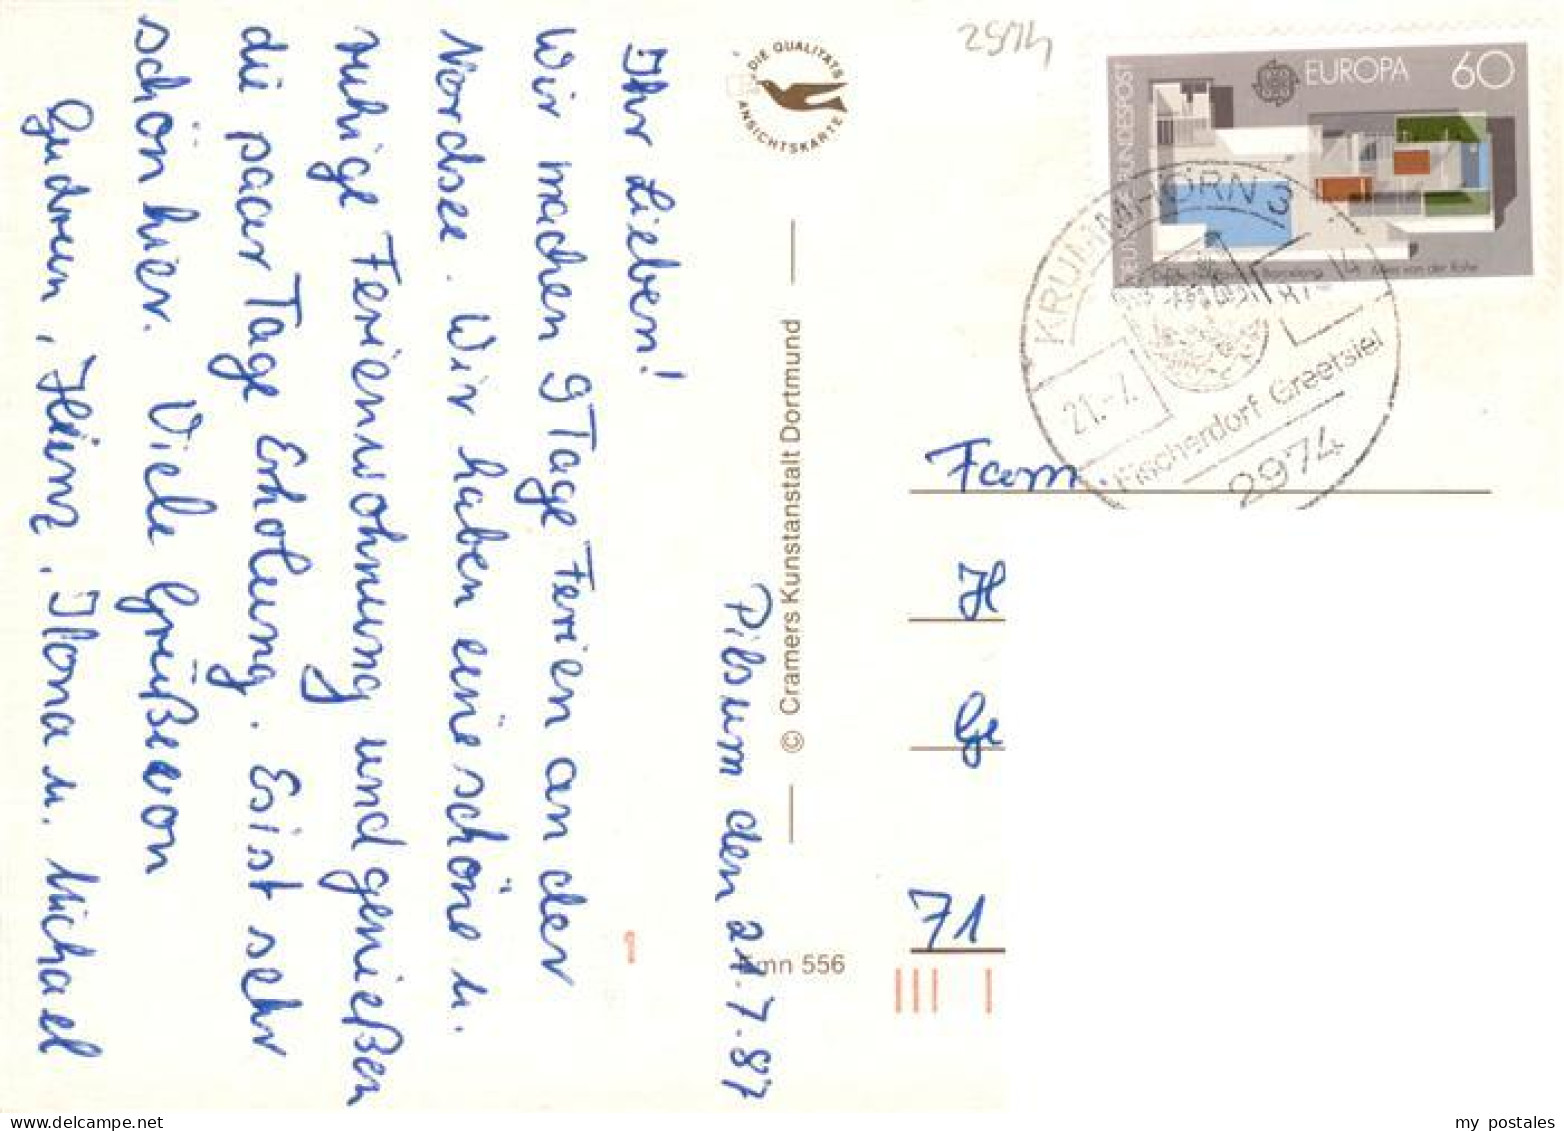 Pilsum den 21.7.87
Ihr Lieben!
Wir machen 9 Tage Ferien an der
Nordsee. Wir haben eine schöne u.
ruhige Ferienwohnung und genießen
die paar Tage Erholung. Es ist sehr
schön hier. Viele Grüße von
Gudrun, Heinz, Ilona u. Michael
DIE QUALITÄTS
ANSICHTSKARTE
© Cramers Kunstanstalt Dortmund
Emn 556
DEUTSCHE BUNDESPOST
EUROPA 60
Mies van der Rohe
KRUMMHÖRN 3
21.-7.
87-14
Fischerdorf Greetsiel
2974
Fam
H
Ge
71
my postales